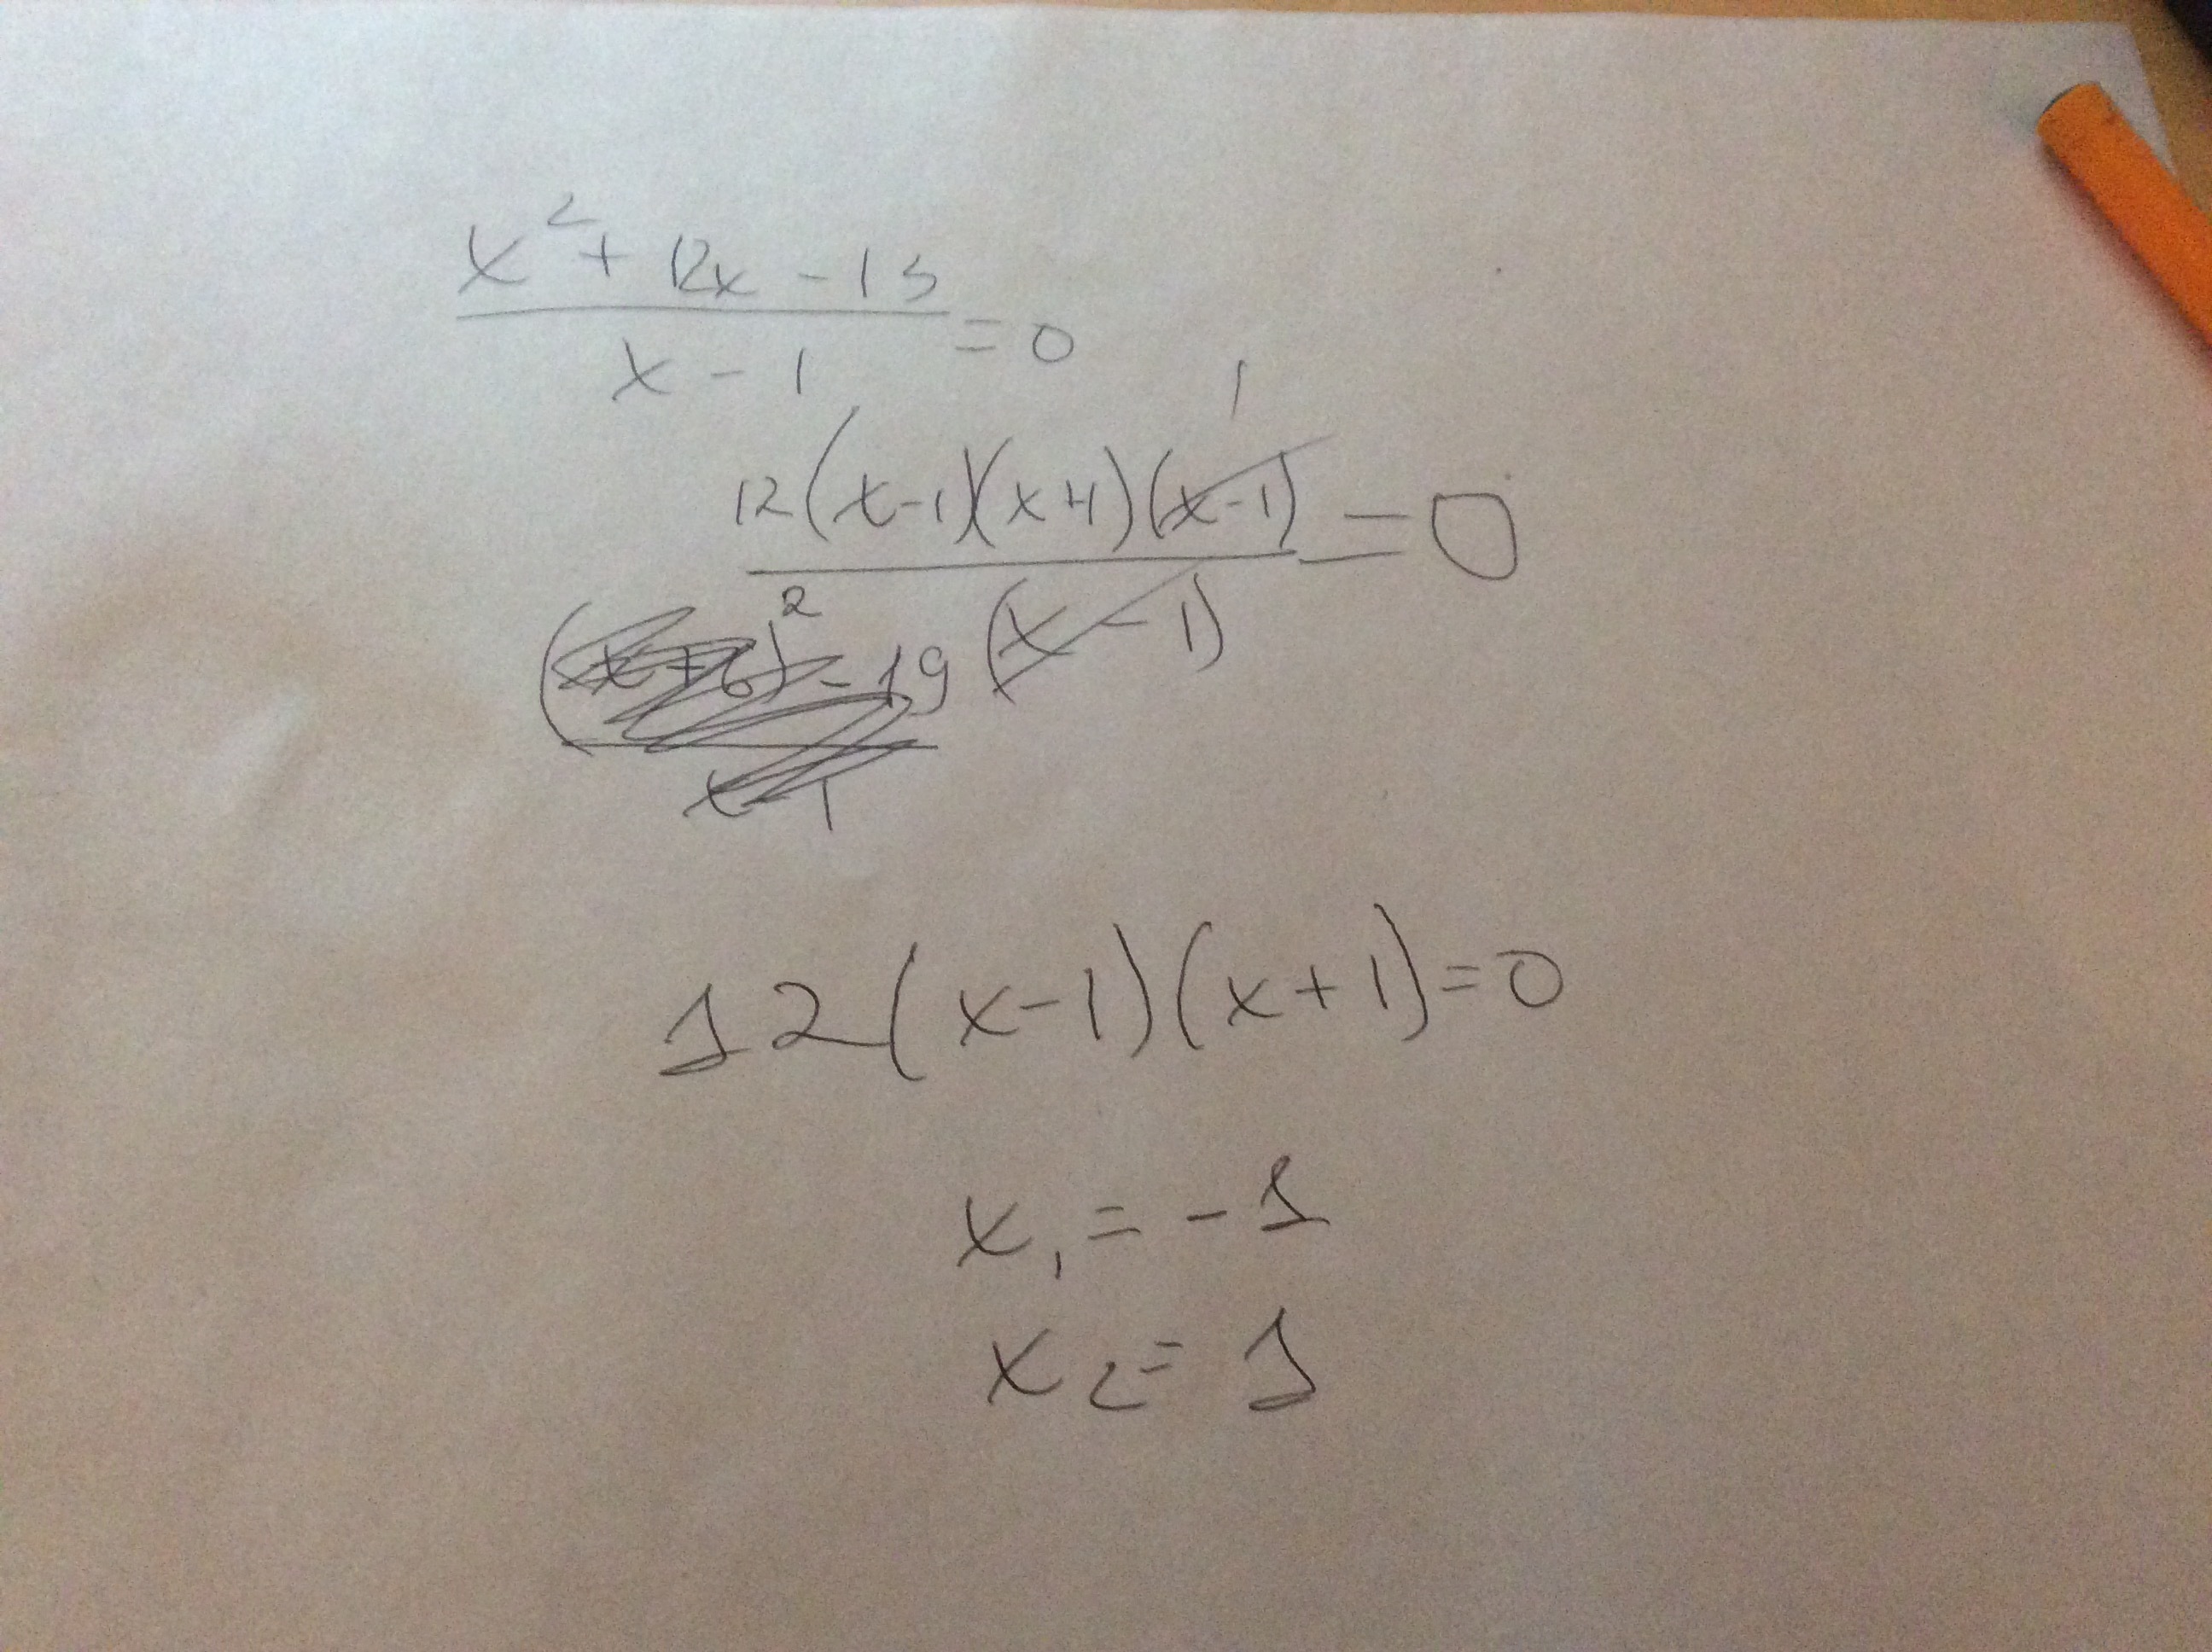 x² + 12x - 13
x - 1 = 0
1
12(x-1)(x+1)(x-1) = 0
(x+6)² - 19 (x-1)
x-1
12(x-1)(x+1)=0
x₁ = -1
x₂ = 1